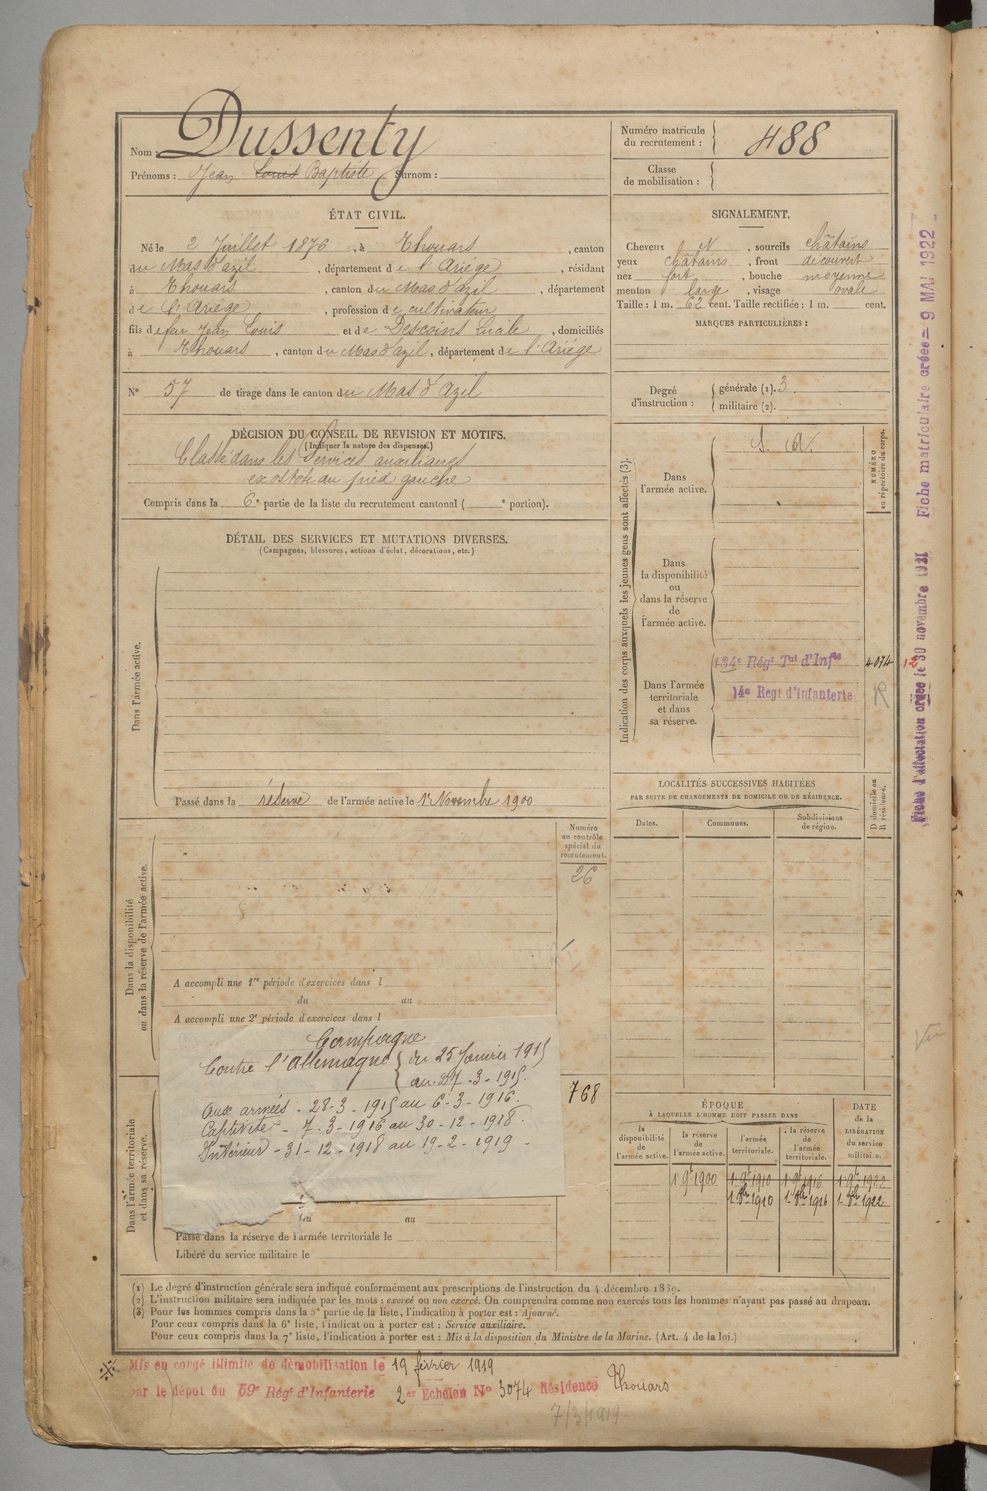 Nom : Dussenty
Prénoms : Jean Louis Baptiste Surnom :
Numéro matricule du recrutement : 488
Classe de mobilisation :
ÉTAT CIVIL.
Né le 2 Juillet 1876, à Thouars, canton
du Mas d'azil, département de l'Ariège, résidant
à Thouars, canton du Mas d'azil, département
de l'Ariège, profession de cultivateur
fils de feu Jean Louis et de Descoins Lucile, domiciliés
à Thouars, canton du Mas d'azil, département de l'Ariège
N° 57 de tirage dans le canton du Mas d'Azil
SIGNALEMENT.
Cheveux N, sourcils châtains
yeux châtains, front découvert
nez fort, bouche moyenne
menton large, visage ovale
Taille : 1 m. 62 cent. Taille rectifiée : 1 m. cent.
MARQUES PARTICULIÈRES :
Degré d'instruction : générale (1). 3
militaire (2).
DÉCISION DU CONSEIL DE REVISION ET MOTIFS.
(Indiquer la nature des dispenses.)
Classé dans les Services auxiliaires
exostose au pied gauche
Compris dans la 6e partie de la liste du recrutement cantonal ( e portion).
DÉTAIL DES SERVICES ET MUTATIONS DIVERSES.
(Campagnes, blessures, actions d'éclat, décorations, etc.)
Dans l'armée active.
Passé dans la réserve de l'armée active le 1er Novembre 1900
Indication des corps auxquels les jeunes gens sont affectés (3).
NUMÉRO au répertoire du corps.
Dans l'armée active.
S. A.
Dans la disponibilité ou dans la réserve de l'armée active.
Dans l'armée territoriale et dans sa réserve.
134e Régt Tal d'Infie 4074
14e Regt d'Infanterie R
LOCALITÉS SUCCESSIVES HABITÉES
PAR SUITE DE CHANGEMENTS DE DOMICILE OU DE RÉSIDENCE.
D domicile ou R résidence.
Dates. Communes. Subdivisions de région.
Dans la disponibilité ou dans la réserve de l'armée active.
Numéro au contrôle spécial du recrutement.
26
A accompli une 1re période d'exercices dans l
du au
A accompli une 2e période d'exercices dans l
Campagne
Contre l'Allemagne du 25 Janvier 1915
au 27-3-1915.
Aux armées - 28-3-1915 au 6-3-1916.
Captivité - 7-3-1916 au 30-12-1918
Intérieur - 31-12-1918 au 19-2-1919 -
768
Dans l'armée territoriale et dans sa réserve.
du au
Passé dans la réserve de l'armée territoriale le
Libéré du service militaire le
ÉPOQUE
À LAQUELLE L'HOMME DOIT PASSER DANS
la disponibilité de l'armée active. la réserve de l'armée active. l'armée territoriale. la réserve de l'armée territoriale.
DATE de la LIBÉRATION du service militaire.
1 9e 1900 1 9e 1910 1 9e 1916 1 9e 1922
1 8bre 1910 1 8bre 1916 1 8bre 1922
(1) Le degré d'instruction générale sera indiqué conformément aux prescriptions de l'instruction du 4 décembre 1889.
(2) L'instruction militaire sera indiquée par les mots : exercé ou non exercé. On comprendra comme non exercés tous les hommes n'ayant pas passé au drapeau.
(3) Pour les hommes compris dans la 5e partie de la liste, l'indication à porter est : Ajourné.
Pour ceux compris dans la 6e liste, l'indication à porter est : Service auxiliaire.
Pour ceux compris dans la 7e liste, l'indication à porter est : Mis à la disposition du Ministre de la Marine. (Art. 4 de la loi.)
Mis en congé illimité de démobilisation le 19 février 1919
par le dépôt du 59e Régt d'Infanterie 2er Echelon N° 3074 Résidence Thouars
7/3/1919
Fiche d'affectation créée le 30 novembre 1921
Fiche matriculaire créée = 9 MAI 1922